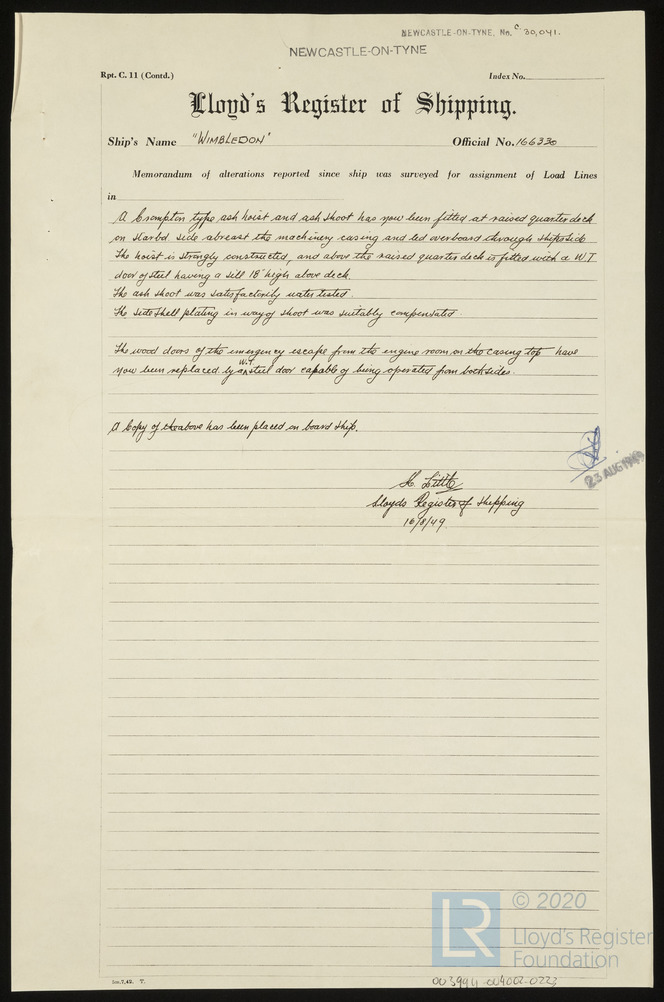 NEWCASTLE-ON-TYNE. No. C. 30,041.
NEWCASTLE-ON-TYNE
Rpt. C. 11 (Contd.)
Index No.
Lloyd's Register of Shipping.
Ship's Name "WIMBLEDON"
Official No. 166330
Memorandum of alterations reported since ship was surveyed for assignment of Load Lines
in
A Crompton type ash hoist and ash shoot has now been fitted at raised quarter deck
on starbd side abreast the machinery casing and led overboard through ships side
The hoist is strongly constructed, and above the raised quarter deck is fitted with a W.T
door of steel having a sill 18" high above deck.
The ash shoot was satisfactorily water tested.
The side shell plating in way of shoot was suitably compensated.
The wood doors of the emergency escape from the engine room on the casing top have
now been replaced by a W.T. steel door capable of being operated from both sides.
A Copy of the above has been placed on board ship.
23 AUG 1949
Little
Lloyds Register of Shipping
16/8/49
© 2020
LR
Lloyd's Register
Foundation
5m.7,49. T.
003994-004002-0223